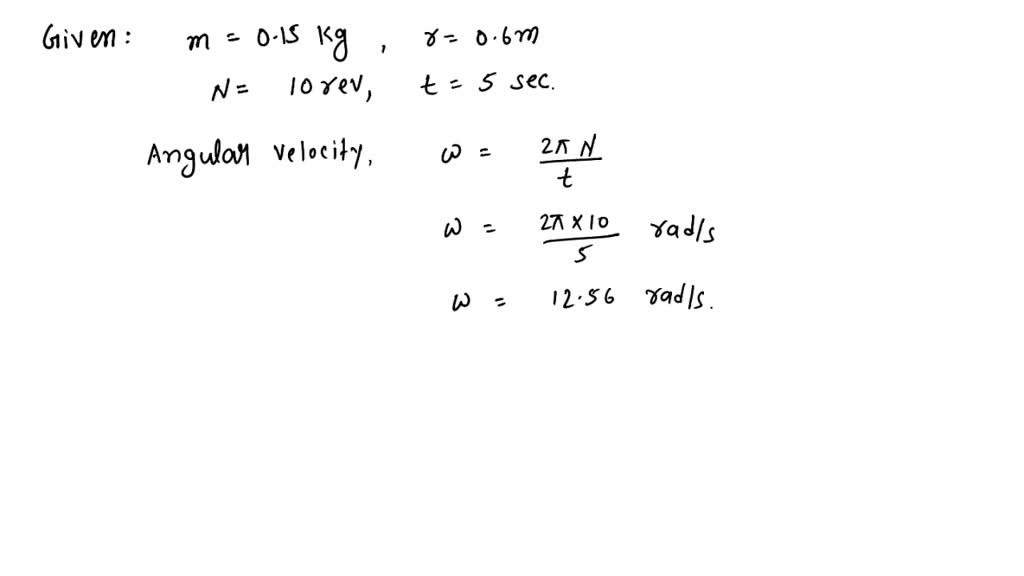 Given: m = 0.15 kg, r = 0.6m
N = 10 rev, t = 5 sec.
Angular velocity, ω = 2π N / t
ω = 2π × 10 / 5 rad/s
ω = 12.56 rad/s.